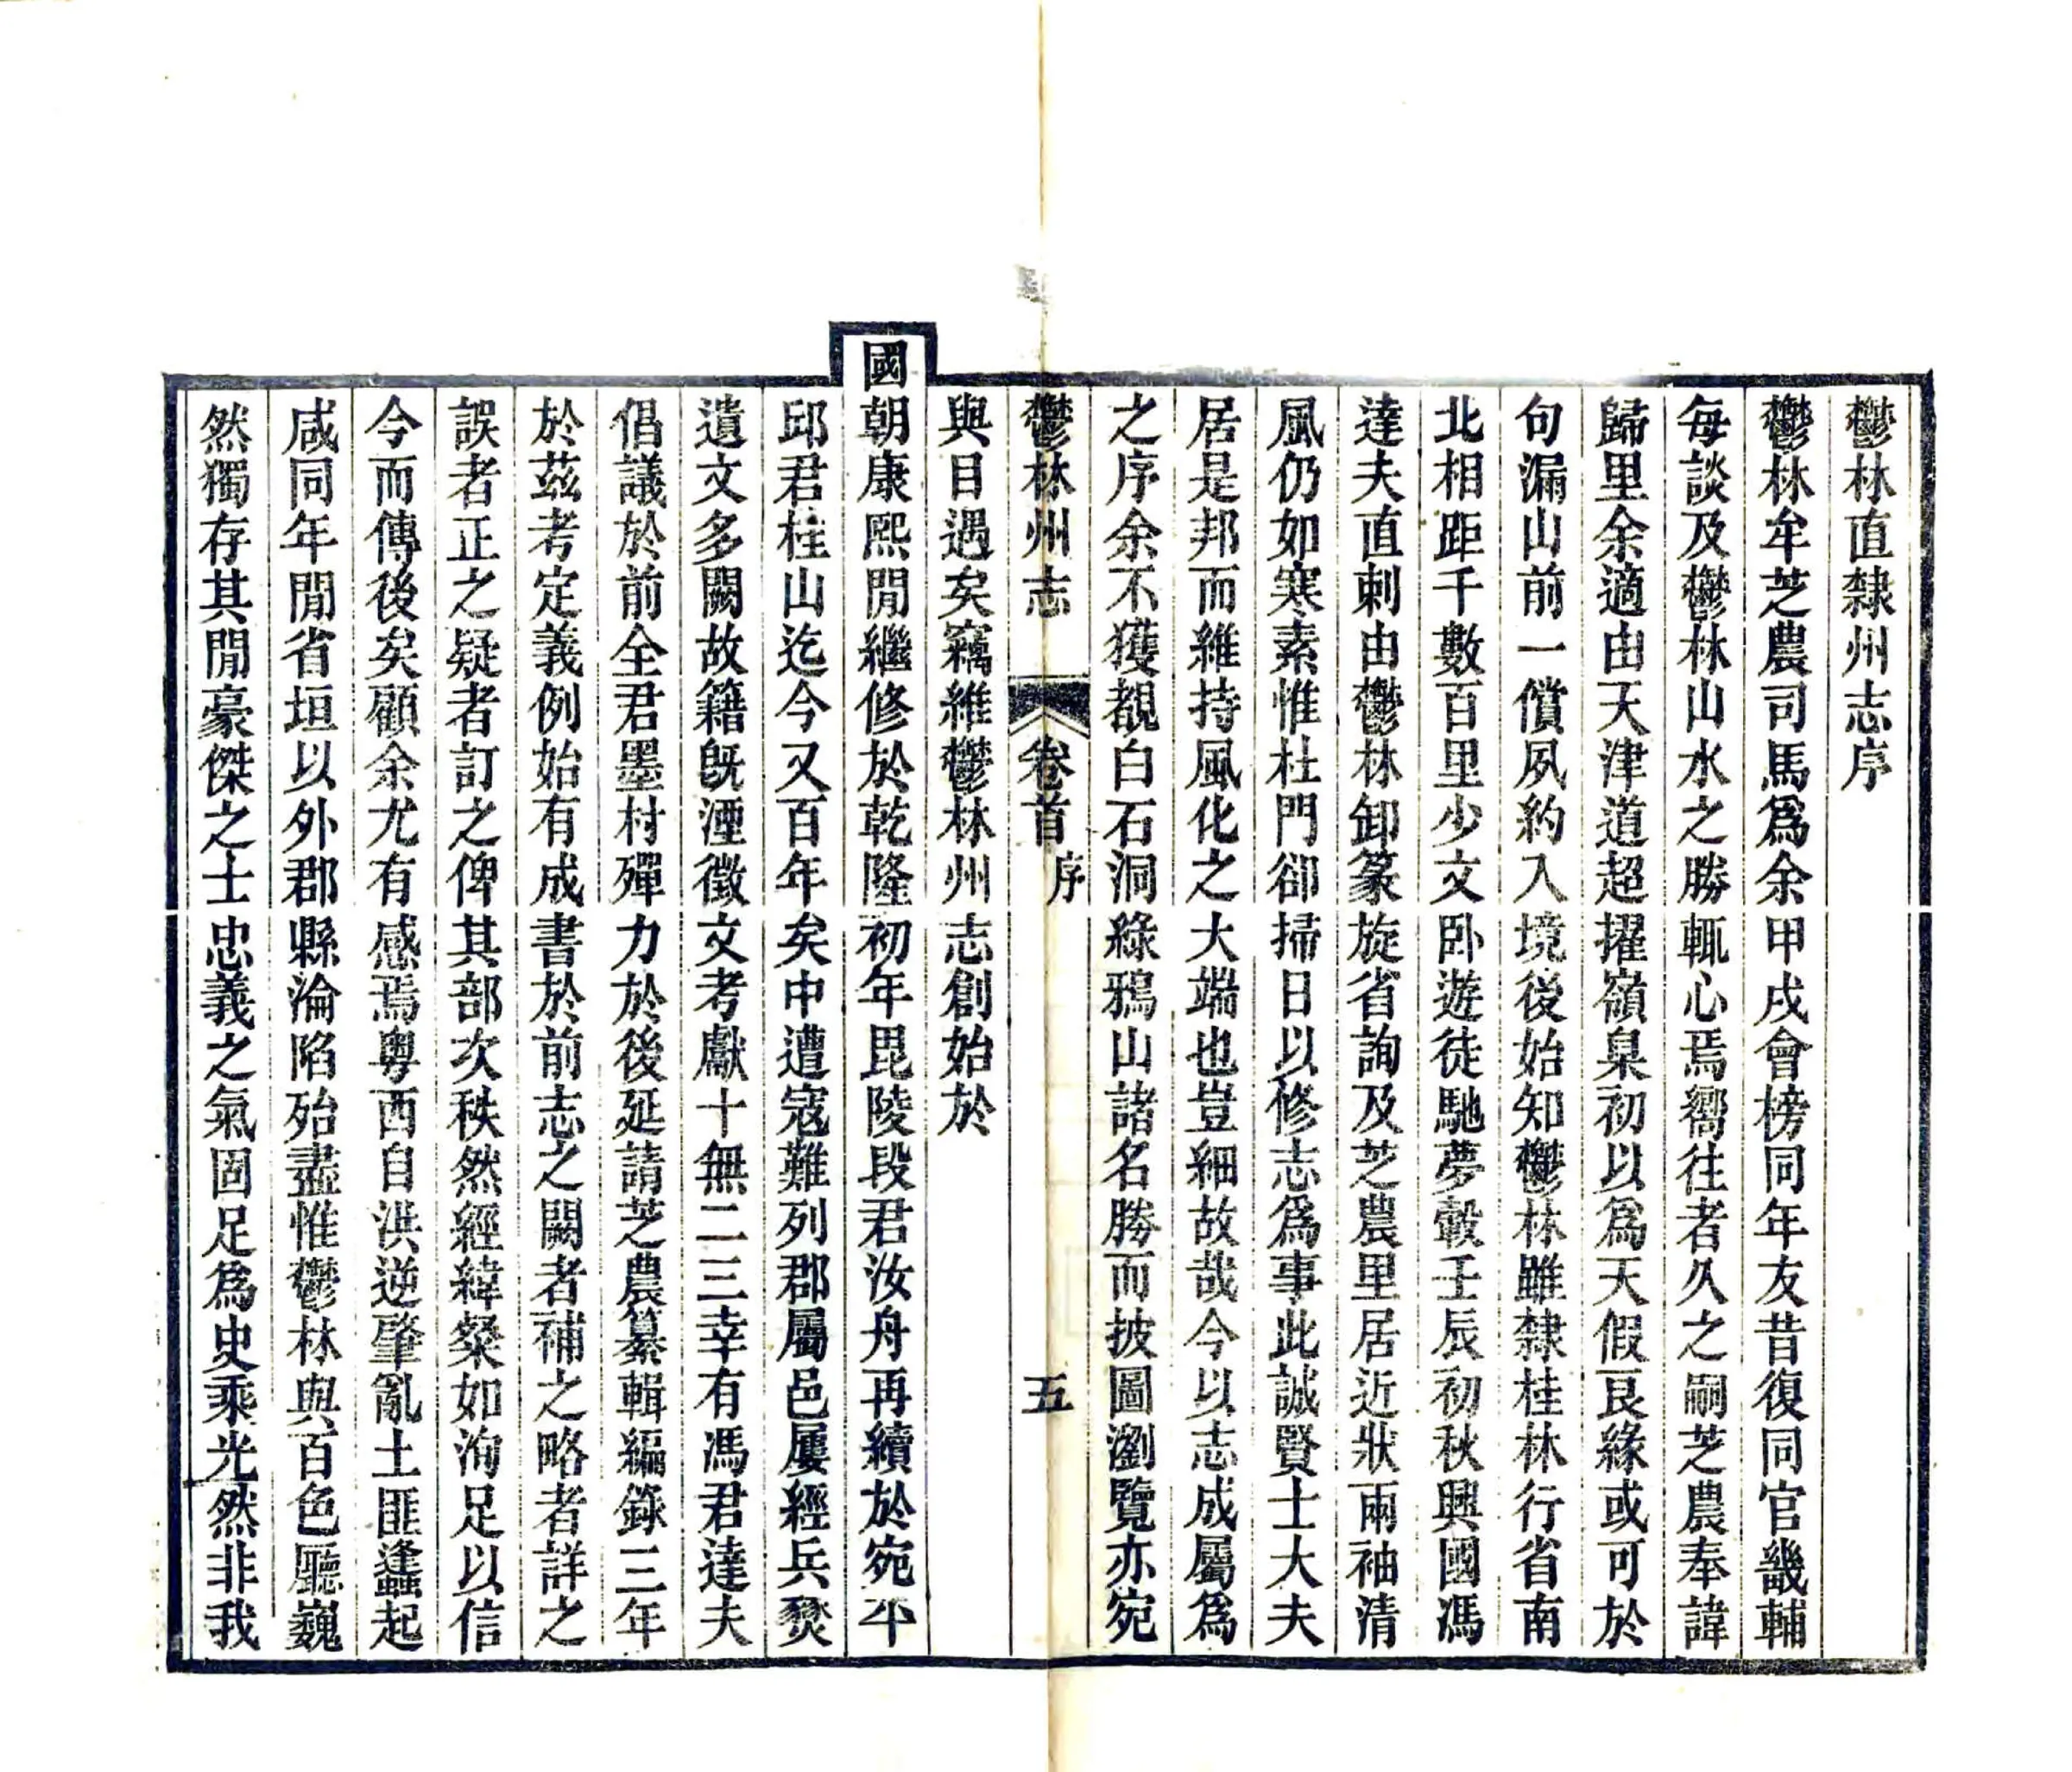 鬱林直隸州志序
鬱林牟芝農司馬爲余甲戌會榜同年友昔復同官畿輔
每談及鬱林山水之勝輒心焉嚮往者久之嗣芝農奉諱
歸里余適由天津道超擢嶺臬初以爲天假良緣或可於
句漏山前一償夙約入境後始知鬱林雖隸桂林行省南
北相距千數百里少文卧遊徒馳夢轂壬辰初秋興國馮
達夫直刺由鬱林卸篆旋省詢及芝農里居近狀兩袖清
風仍如寒素惟杜門卻掃日以修志爲事此誠賢士大夫
居是邦而維持風化之大端也豈細故哉今以志成屬爲
之序余不獲覩白石洞綠鴉山諸名勝而披圖瀏覽亦宛
鬱林州志 卷首 序 五
與目遇矣竊維鬱林州志創始於
國朝康熙閒繼修於乾隆初年毘陵段君汝舟再續於宛平
邱君桂山迄今又百年矣中遭寇難列郡屬邑屢經兵燹
遺文多闕故籍旣湮徵文考獻十無二三幸有馮君達夫
倡議於前全君墨村殫力於後延請芝農纂輯編錄三年
於茲考定義例始有成書於前志之闕者補之略者詳之
誤者正之疑者訂之俾其部次秩然經緯粲如洵足以信
今而傳後矣顧余尤有感焉粵西自洪逆肇亂土匪蠭起
咸同年閒省垣以外郡縣淪陷殆盡惟鬱林與百色廳巍
然獨存其閒豪傑之士忠義之氣固足爲史乘光然非我